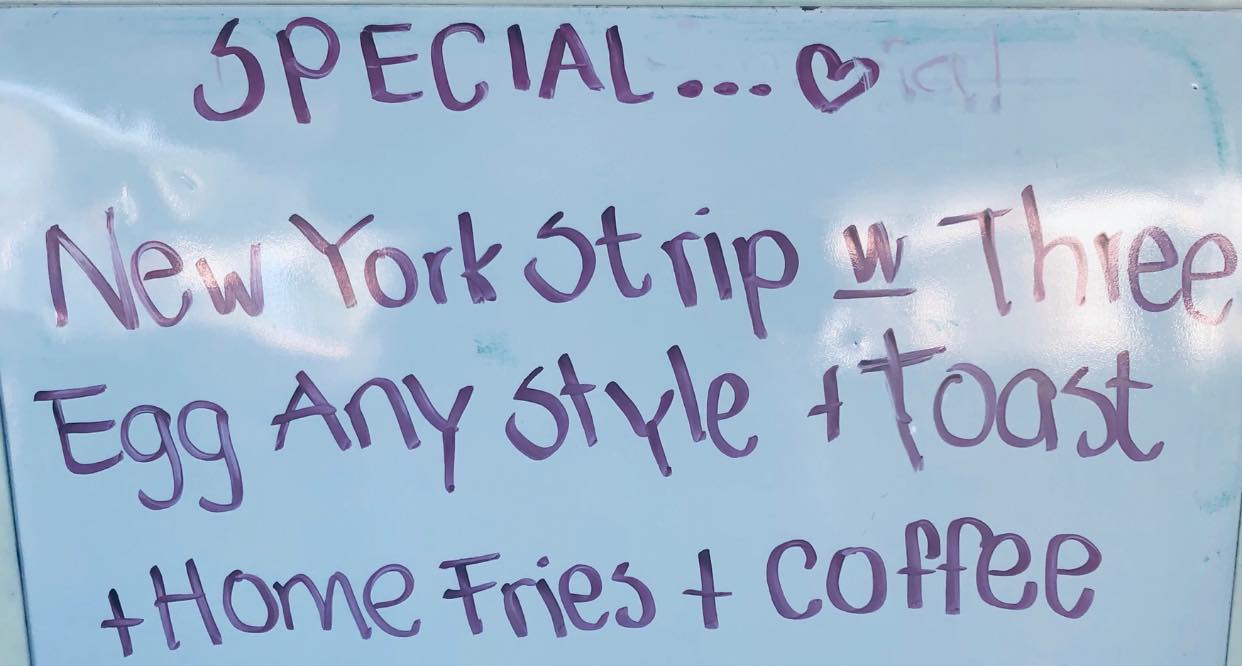 SPECIAL... ♡
New York Strip w Three
Egg Any Style + Toast
+ Home Fries + Coffee